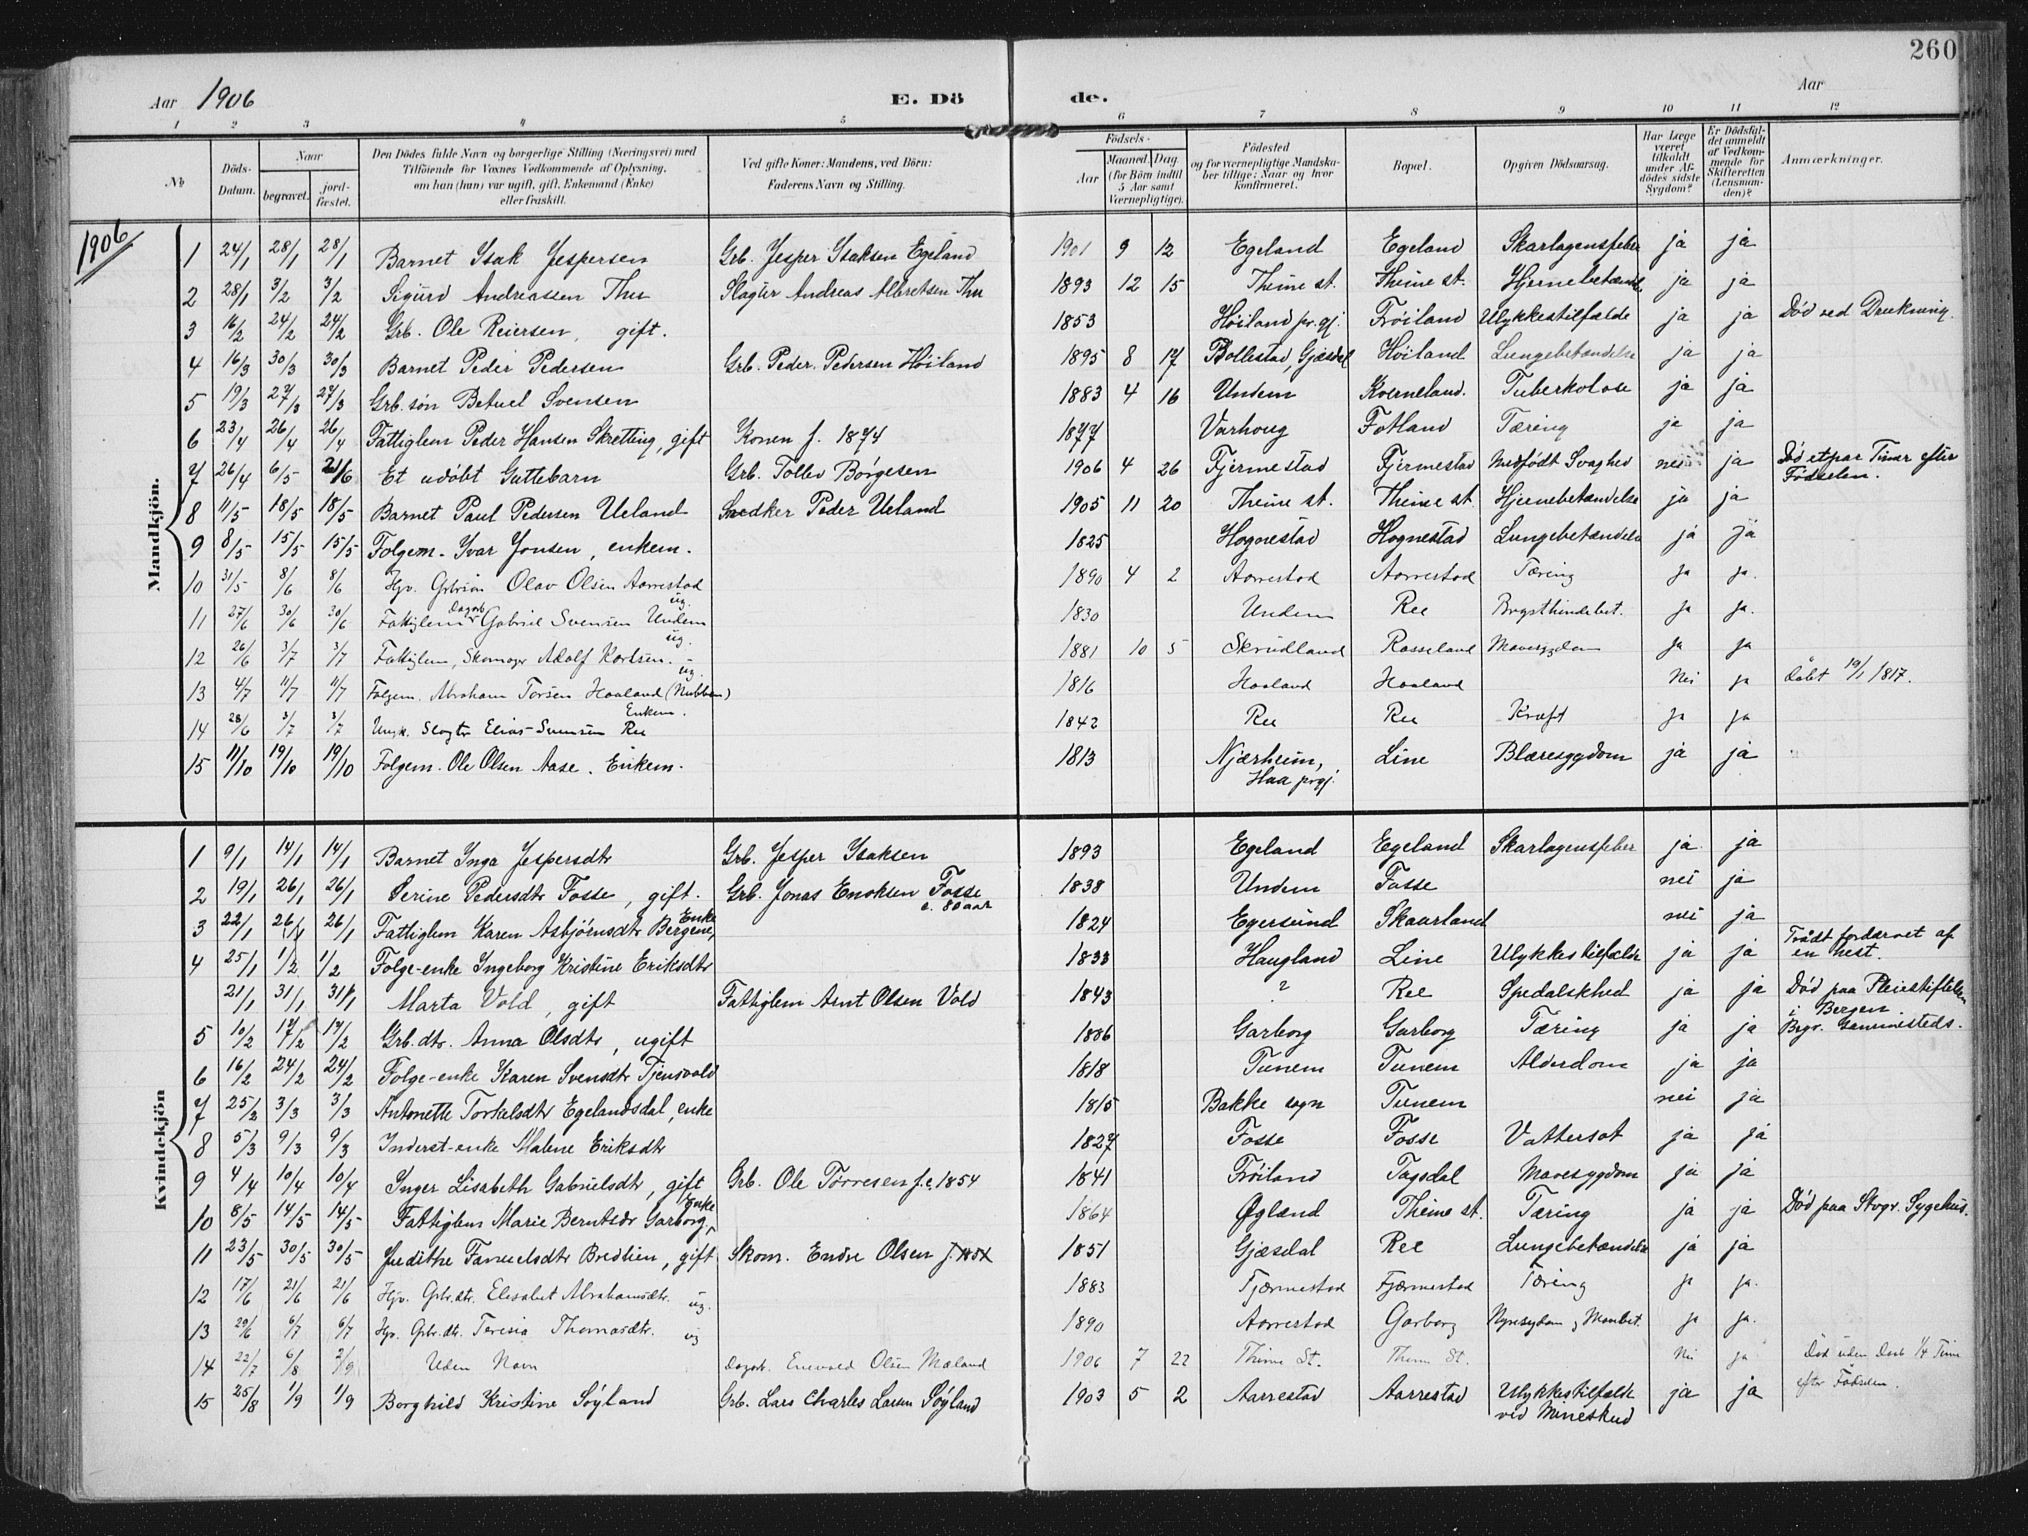 260
Aar 1906 E. Dö de. Aar
1 2 3 4 5 6 7 8 9 10 11 12
No. Döds-Datum. Naar begravet. jord-fæstet. Den Dödes fulde Navn og borgerlige Stilling (Næringsvei) med Tilföiende for Voxnes Vedkommende af Oplysning, om han (hun) var ugift, gift, Enkemand (Enke) eller fraskilt. Ved gifte Koner: Mandens, ved Börn: Faderens Navn og Stilling. Födsels- Aar Maaned. Dag. (for Börn indtil 5 Aar samt Værnepligtige). Födested og for værnepligtige Mandskaber tillige: Naar og hvor konfirmeret. Bopæl. Opgiven Dödsaarsag. Har Læge været tilkaldt under Afdödes sidste Sygdom? Er Dödsfaldet anmeldt af Vedkommende for Skifteretten (Lensmanden)? Anmærkninger.
1906
Mandkjön.
1 24/1 28/1 28/1 Barnet Isak Jespersen Grb. Jesper Isaksen Egeland 1901 9 12 Egeland Egeland Skarlagensfeber ja ja
2 28/1 3/2 3/2 Sigurd Andreassen Thu Slagter Andreas Albretsen Thu 1893 12 15 Thime st. Thime st. Hjernebetændelse ja ja
3 16/2 24/2 24/2 Grb. Ole Reiersen, gift. 1853 Höiland pr.gj. Fröiland Ulykkestilfælde ja ja Död ved Drukning.
4 16/3 30/3 30/3 Barnet Peder Pedersen Grb. Peder Pedersen Höiland 1895 8 17 Bollestad, Gjæsdal Höiland Lungebetændelse ja ja
5 19/3 27/3 27/3 Grb. sön Betuel Svensen 1883 4 16 Undem Kverneland. Tuberkolose ja ja
6 23/4 26/4 26/4 Fattiglem Peder Hansen Skretting, gift Konen f. 1874 1877 Varhoug Fotland Tæring ja ja
7 26/4 6/5 21/6 Et udöbt Guttebarn Grb. Tollev Börgesen 1906 4 26 Fjermestad Fjermestad Medfödt Svaghed nei ja Död et par Timer efter Födselen.
8 11/5 18/5 18/5 Barnet Paul Pedersen Ueland Snedker Peder Ueland 1905 11 20 Thime st. Thime st. Hjernebetændelse ja ja
9 8/5 15/5 15/5 Folgem. Ivar Jonsen, enkem. 1825 Hognestad Hognestad Lungebetændelse ja ja
10 31/5 8/6 8/6 Hjv. Grbsön Olav Olsen Aarrestad ug. 1890 4 2 Aarrestad Aarrestad Tæring ja ja.
11 27/6 30/6 30/6 Fattiglem Dagarb Gabriel Svensen Undem ug. 1830 Undem Ree Brysthindebet. ja ja.
12 26/6 3/7 3/7 Fattiglem, Skomager Adolf Karlsen. ug. 1881 10 5 Skrudland Rosseland Mavesygdom ja ja
13 4/7 11/7 11/7 Folgem. Abraham Torsen Haaland (Nubben) Enkem. 1816 Haaland Haaland Nei ja döbt 19/1 1817.
14 28/6 3/7 3/7 Ungk. Slagter Elias Svensen Ree 1842 Ree Ree Kræft ja ja
15 11/10 19/10 19/10 Folgem. Ole Olsen Aase. Enkem. 1813 Njærheim, Haa prgj. Line Blæresygdom ja ja
Kvindekjön
1 9/1 14/1 14/1 Barnet Inga Jespersdtr Grb. Jesper Isaksen 1893 Egeland Egeland Skarlagensfeber ja ja
2 19/1 26/1 26/1 Serine Pedersdtr Fosse, gift. Grb. Jonas Enoksen Fosse c. 80 aar 1838 Undem Fosse nei ja
3 22/1 26/1 26/1 Fattiglem Karen Asbjörnsdtr Bergene, Enke 1824 Egersund Skaarland nei ja
4 25/1 1/2 1/2 Folge-enke Ingeborg Kristine Eriksdtr 1833 Haugland Line Ulykkestilfælde ja ja Traadt fordærvet af en hest.
21/1 31/1 31/1 Marta Vold, gift Fattiglem Arnt Olsen Vold 1843 ? Ree Spedalskhed ja ja Död paa Pleiestiftelsen i Bergen
5 10/2 17/2 17/2 Grb. dtr. Anna Olsdtr, ugift 1886 Garborg Garborg Tæring ja ja
6 16/2 24/2 24/2 Folge-enke Karen Svensdtr Tjensvold 1818 Tunem Tunem Alderdom ja ja
7 25/2 3/3 3/3 Antonette Torkelsdtr Egelandsdal, enke 1815 Bakke sogn Tunem nei ja
8 5/3 9/3 9/3 Inderst-enke Malene Eriksdtr 1827 Fosse Fosse Vattersot ja ja
9 4/4 10/4 10/4 Inger Lisabeth Gabrielsdtr, gift Grb. Ole Torresen f. c. 1854 1841 Fröiland Tagsdal Mavesygdom ja ja
10 8/5 14/5 14/5 Fattiglem Marie Berntsdr Garborg, Enke 1864 Øgland Thime st. Tæring ja ja Död paa Stvgr. Sygehus.
11 23/5 30/5 30/5 Judithe Samuelsdtr Bredlien, gift Skom. Endre Olsen 1851 Gjæsdal Ree Lungebetændelse ja ja
12 17/6 21/6 21/6 Hjv. Grbr.dtr. Elisabet Abrahamsdtr. ug. 1883 Fjærmestad Fjærmestad Tæring ja ja.
13 29/6 6/7 6/7 Hjv. Grbr.dtr. Teresia Thomasdtr. ug 1890 Aarrestad Garborg ja ja.
14 22/7 6/8 2/9 Uden Navn Dagarb. Enevald Olsen Mæland 1906 7 22 Thime St. Thime St. Nei ja Död uden Daab 1/4 Time efter Födselen.
15 25/8 1/9 1/9 Borghild Kristine Söyland Grb. Lars Charles Larsen Söyland 1903 5 2 Aarrestad Aarrestad Ulykkestilfælde ved Mineskud ja ja